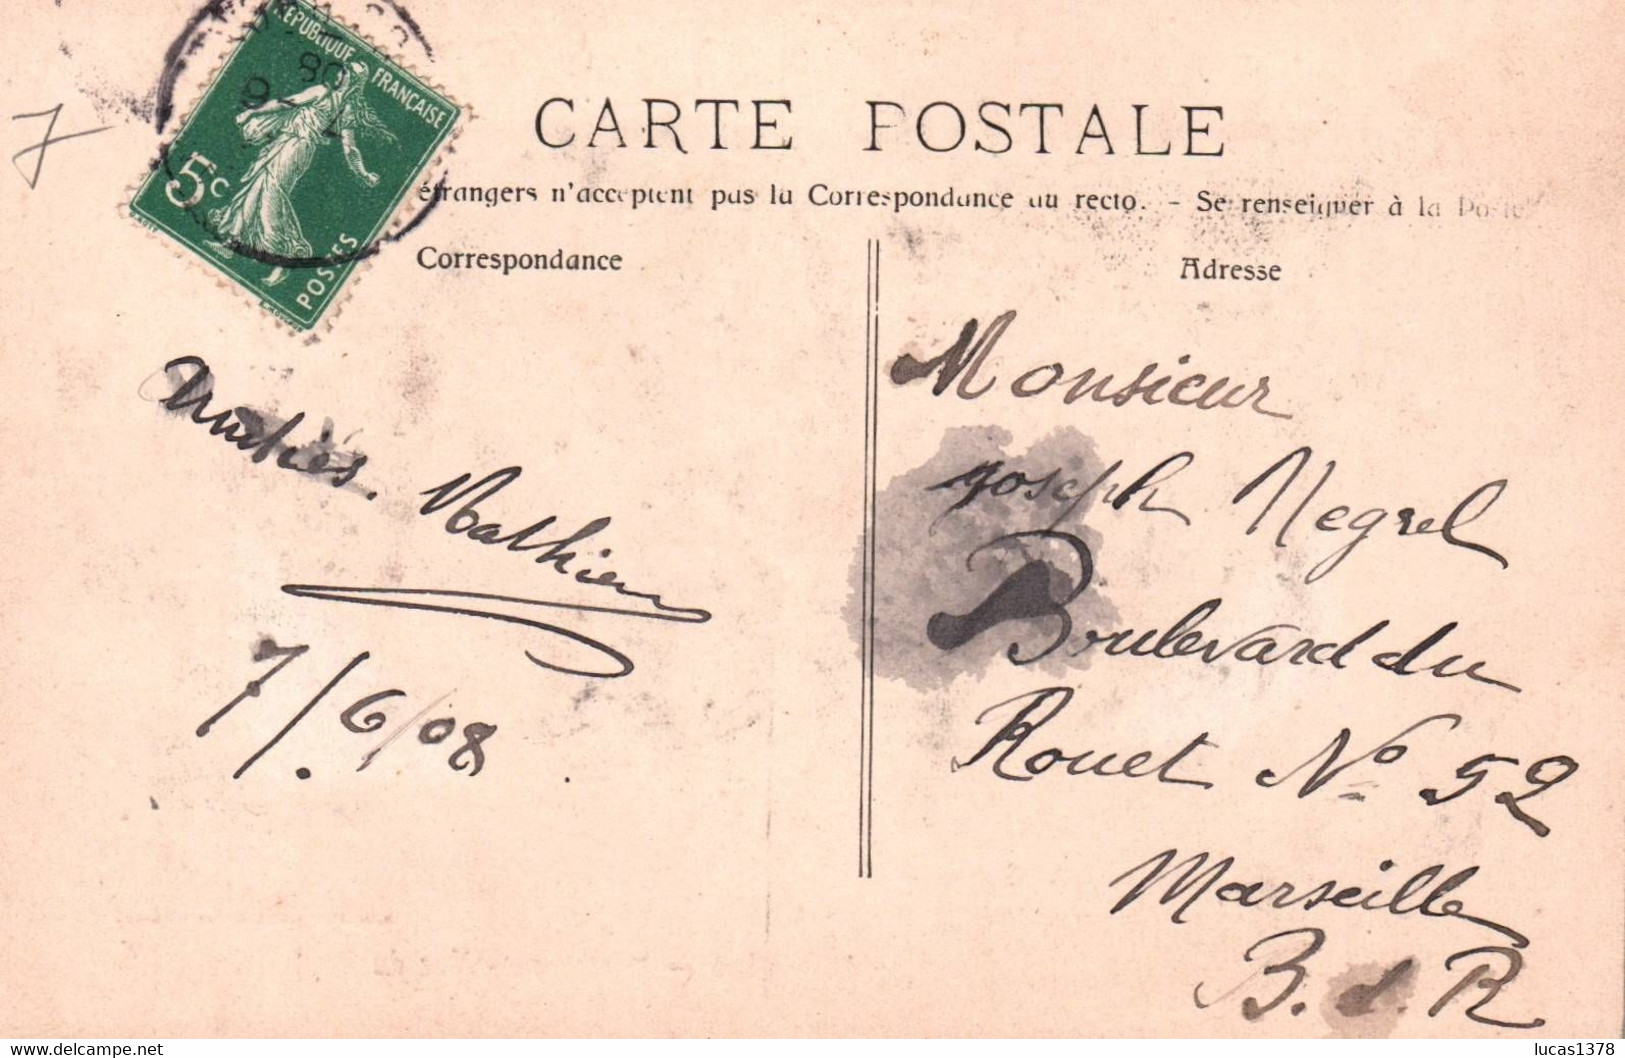 RÉPUBLIQUE FRANÇAISE
5c
POSTES
08
7
CARTE POSTALE
étrangers n'acceptent pas la Correspondance au recto. - Se renseigner à la Poste
Correspondance
Adresse
Amitiés. Mathieu
7/6/08
Monsieur
Joseph Negrel
Boulevard du
Rouet No 52
Marseille
B. d. R
lucas1378